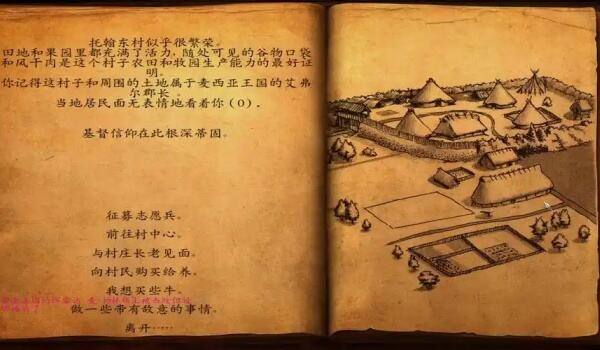 托翰东村似乎很繁荣。
田地和果园里都充满了活力，随处可见的谷物口袋
和风干肉是这个村子农田和牧园生产能力的最好证
明。
你记得这村子和周围的土地属于麦西亚王国的艾弗
尔郡长。
当地居民面无表情地看着你(0)．
基督信仰在此根深蒂固。
征募志愿兵。
前往村中心。
与村庄长老见面。
向村民购买给养。
我想买些牛。
做一些带有敌意的事情。
离开……